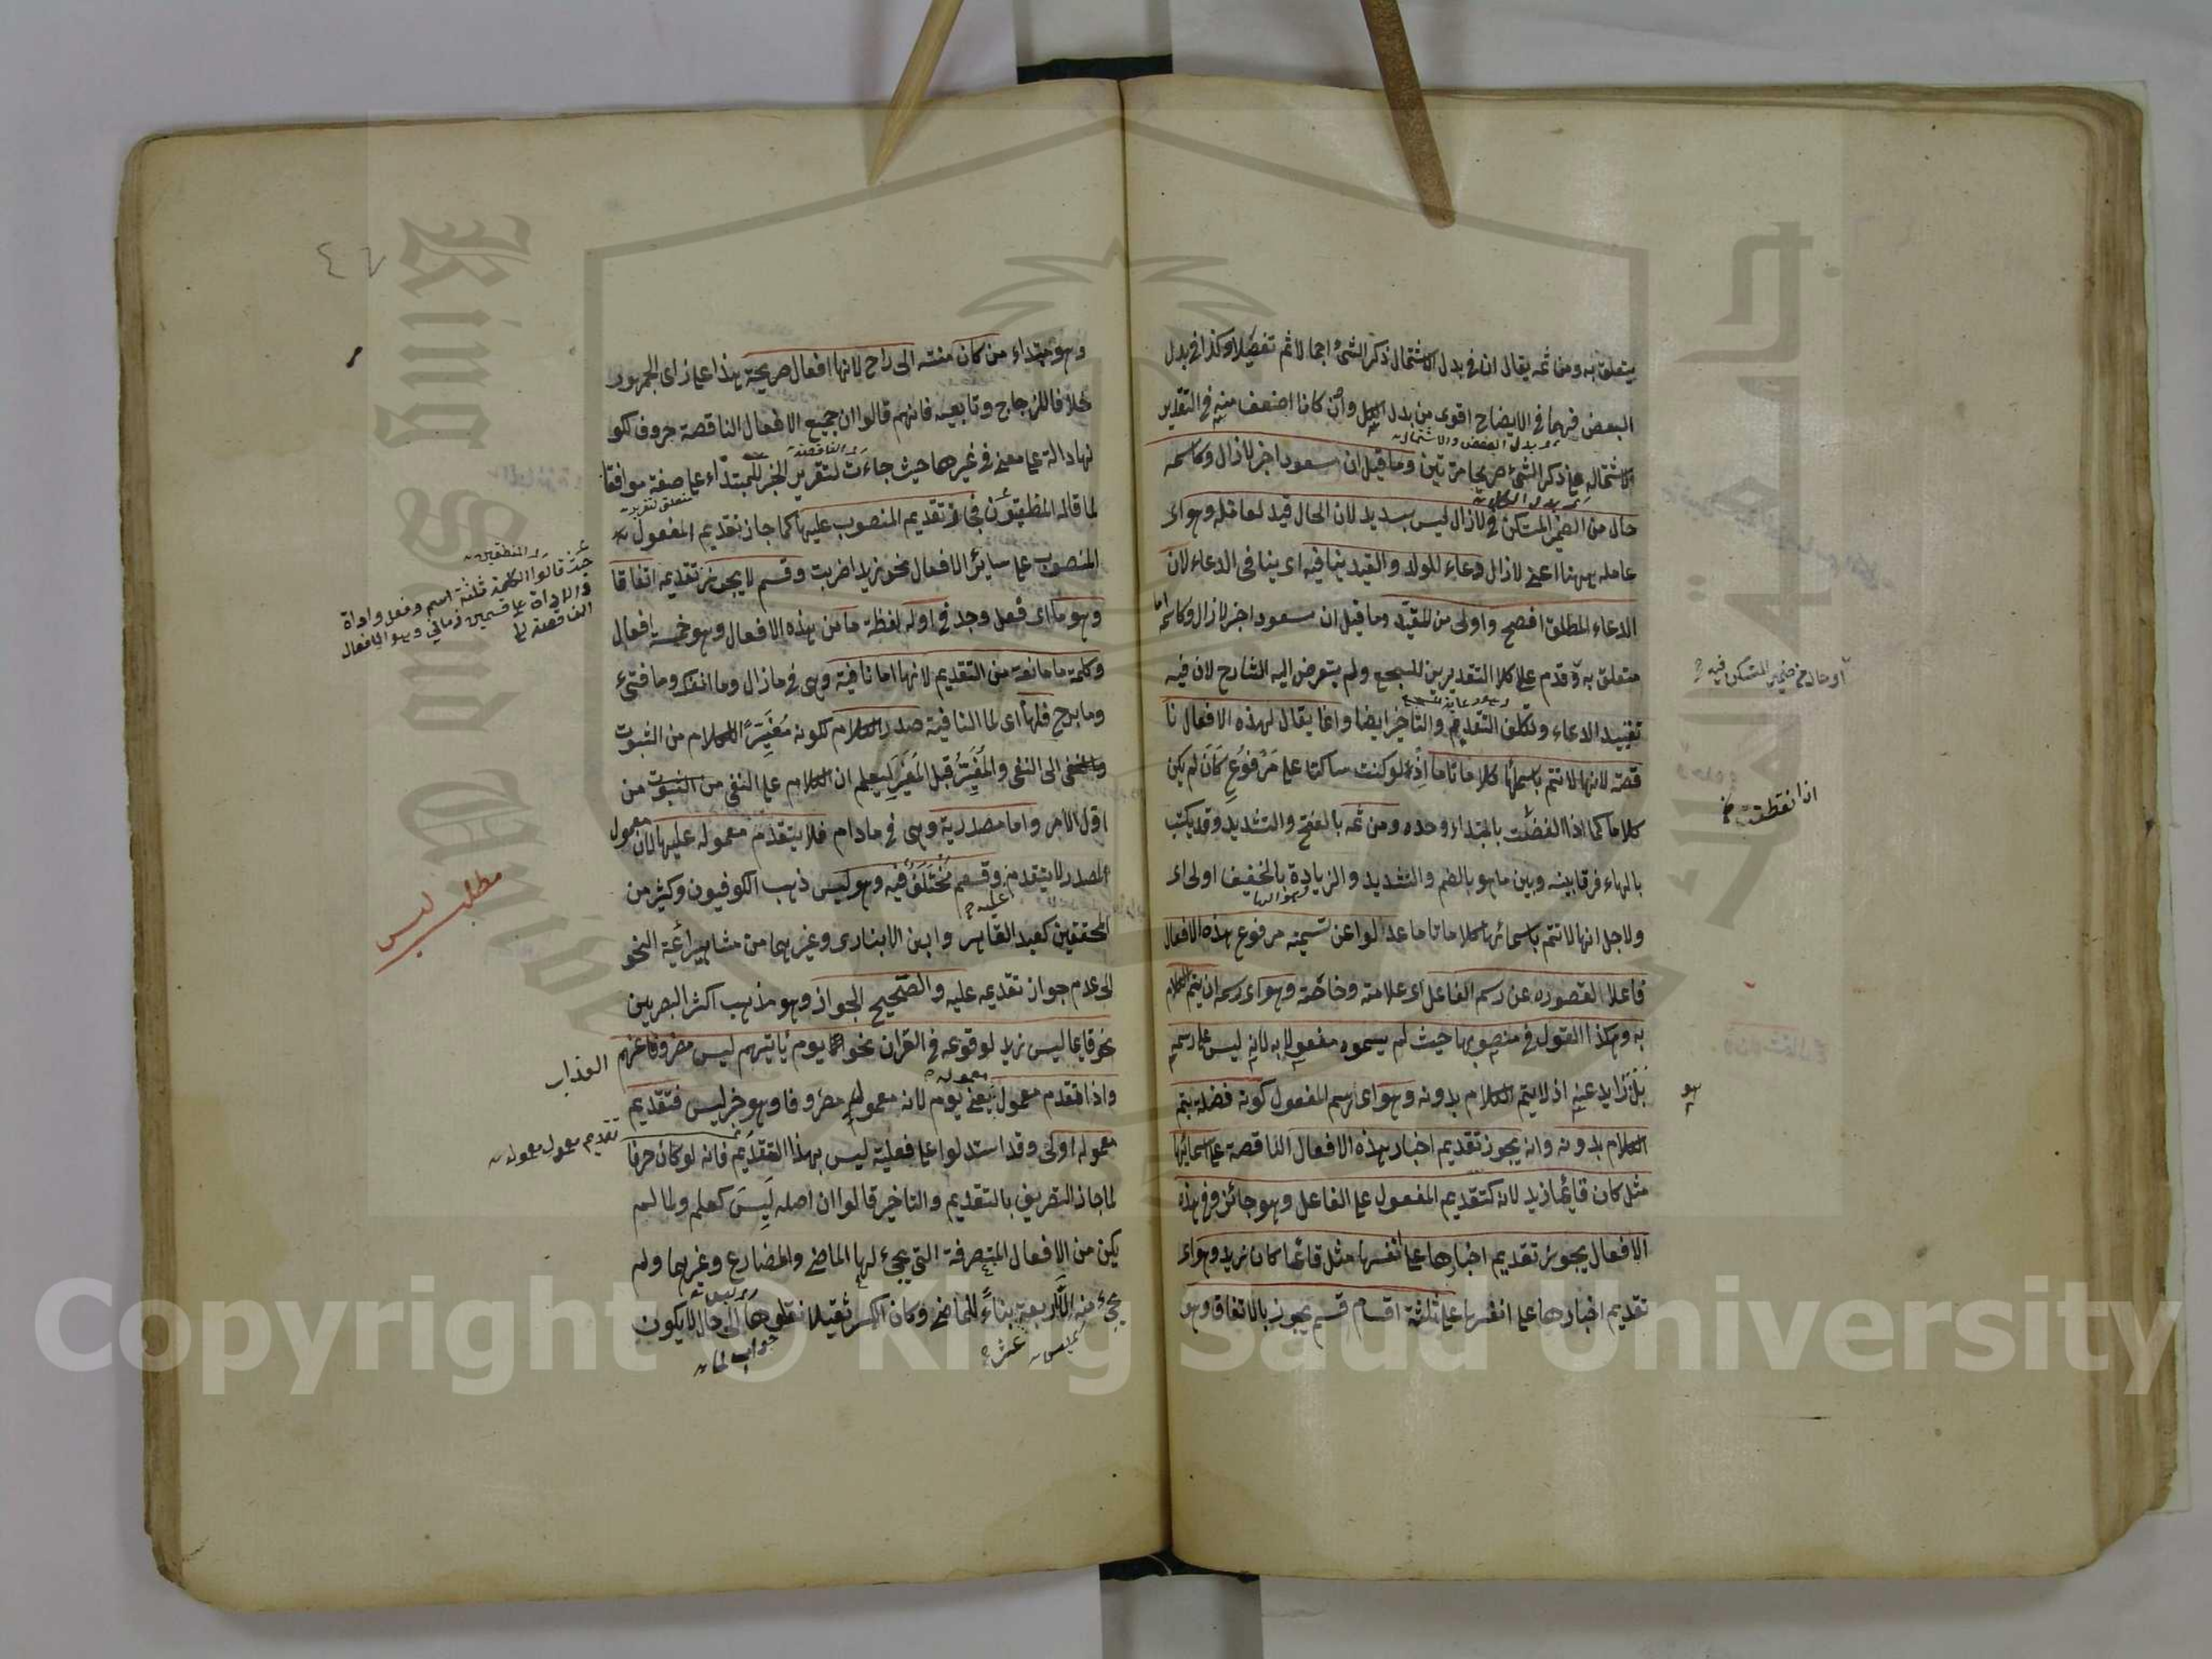 يتعلق به ومن ثمه يقال ان في بدل الاشتمال ذكر الشئ اجمالا ثم تفصيلا وكذا في بدل
البعض فهما في الايضاح اقوى من بدل الكل وان كانا اضعف منه في التقدير
اي بدل البعض والاشتمال
لاشتماله على ذكر الشئ صريحا مرتين وما قيل ان سعودا خبر لازال وكاسمه
اي بدل الكل
حال من الضمير المستكن في لازال ليس بسديد لان الحال قيد لعامله وهو اى
عامله ههنا اعنى لازال دعاء للولد والقيد ينافيه اى ينافى الدعاء لان
الدعاء المطلق افصح واولى من المقيد وما قيل ان سعودا خبر لازال وكاسمه اما
متعلق به وقدم على كلا التقديرين للسجع ولم يتعرض اليه الشارح لان فيه
او حال من ضمير المستكن فيه
تقييد الدعاء وتكلف التقديم والتاخير ايضا وانما يقال لهذه الافعال نا
قصة لانها لا تتم باسمائها كلاما تاما اذ لو كنت ساكتا على مرفوع كان لم يكن
كلاما كما اذا انفصلت بالمبتداء وحده ومن ثمه بالفتح والتشديد وقد يكتب
بالهاء فرقا بينه وبين ما هو بالضم والتشديد والزيادة بالخفيف اولى اى
ولاجل انها لا تتم باسمائها كلاما تاما عدلوا عن تسمية مرفوع هذه الافعال
فاعلا لقصوره عن رسم الفاعل اى علامته وخاصته وهو اى رسمه ان يتم الكلام
به وهكذا القول في منصوبها حيث لم يسموه مفعولا به لانه ليس على رسمه
بل زايد عنه اذ لا يتم الكلام بدونه وهو اى رسم المفعول كونه فضلة يتم
هو
الكلام بدونه وانه يجوز تقديم اخبار هذه الافعال الناقصة على اسمائها
مثل كان قائما زيد لانه كتقديم المفعول على الفاعل وهو جائز وفي هذه
الافعال يجوز تقديم اخبارها على انفسها مثل قائما كان زيد وهو اى
تقديم اخبارها على انفسها على ثلثة اقسام قسم يجوز بالاتفاق وهو
٤٧
وهو مبتداء من كان منته الى راح لانها افعال صريحة هذا على راى الجمهور
خلافا للزجاج وتابعيه فانهم قالوا ان جميع الافعال الناقصة حروف لكو
اي الناقصة
نها دالة على معنى في غيرها حيث جاءت لتقرير الخبر للمبتداء على صفة موافقا
متعلق لتقرير
لما قاله المنطقيون فجاز تقديم المنصوب عليها كما جاز تقديم المفعول
اي المنطقيين
قالوا الكلمة ثلثة اسم وفعل واداة
والاداة على قسمين زماني وهو الافعال
الناقصة
المنصوب على سائر الافعال نحو زيدا ضربت وقسم لا يجوز تقديمه اتفاقا
وهو ما اى فعل وجد في اوله لفظة ما من هذه الافعال وهو خمسة افعال
وكلمة ما مانعة من التقديم لانها اما نافية وهى في مازال وما انفك وما فتئ
وما برح فلها اى لما النافية صدر الكلام لكونه مغيرا الكلام من الثبوت
والنفى الى النفى والمغير قبل المغير ليعلم ان الكلام على النفى من الثبوت من
اول الامر واما مصدرية وهى في مادام فلا يتقدم معموله عليها لان معمول
المصدر لا يتقدم عليه وقسم مختلف فيه وهو ليس ذهب الكوفيون وكثير من
مطلب ليس
المحققين كعبد القاهر وابن الانبارى وغيرهما من مشاهير ائمة النحو
الى عدم جواز تقديمه عليه والصحيح الجواز وهو مذهب اكثر البصريين
نحو قائما ليس زيد لوقوعه في القران نحو الا يوم يأتيهم ليس مصروفا عنهم العذاب
واذا تقدم معمول معموله يعنى يوم لانه معمول مصروفا وهو خبر ليس فتقديم
معموله اولى وقد استدلوا على فعلية ليس بهذا التقديم فانه لو كان حرفا
تقديم معمول معموله
لما جاز التصريف بالتقديم والتاخير قالوا ان اصله ليس كعلم ولما لم
يكن من الافعال المتصرفة التى يجئ لها الماضى والمضارع وغيرهما ولم
يجئ منه الا اربعة عشر بناء للماضى وكان الكسر ثقيلا نقلوها الى حال لا يكون
اي ليس
جواب لما
Copyright © King Saud University